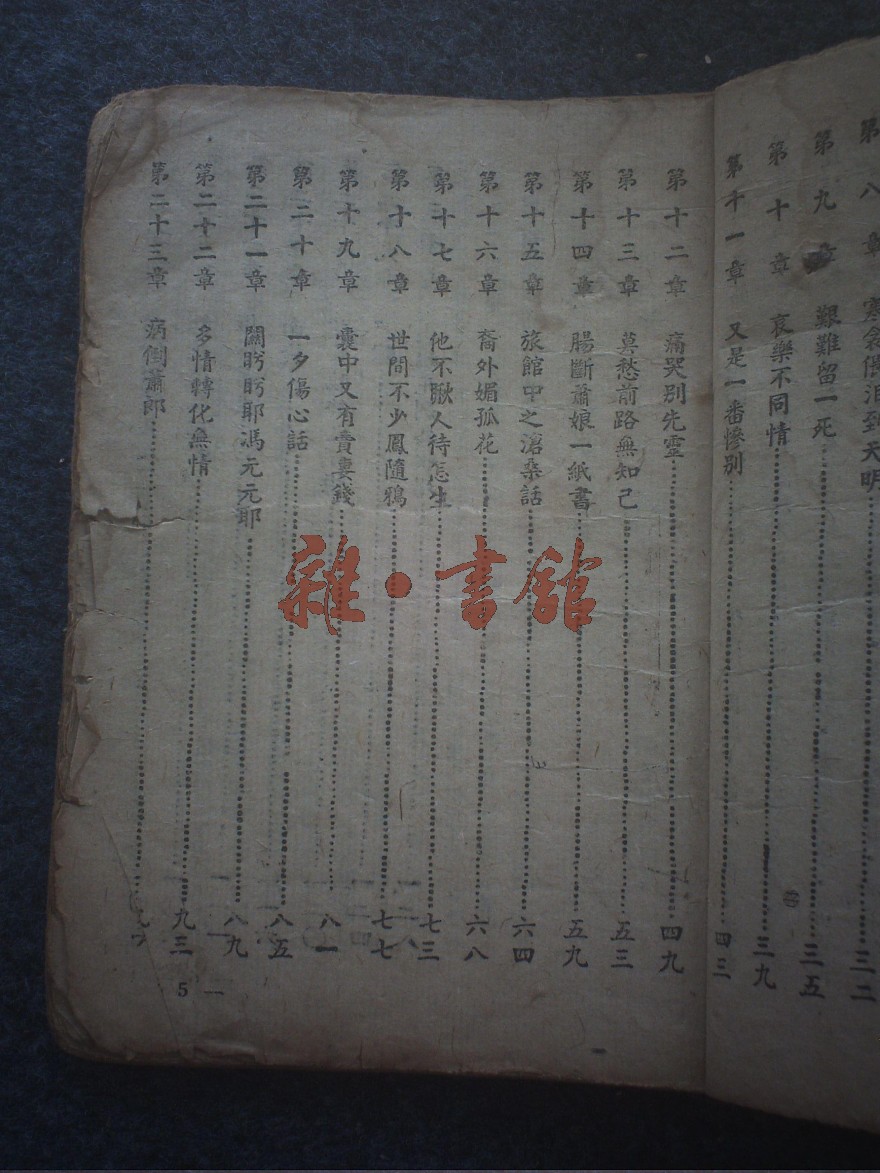 第八章 寒衾偎泪到天明 三二
第九章 艱難留一死 三五
第十章 哀樂不同情 三九
第十一章 又是一番慘別 四三
第十二章 痛哭別先靈 四九
第十三章 莫愁前路無知己 五三
第十四章 腸斷蕭娘一紙書 五九
第十五章 旅館中之滄桑話 六四
第十六章 裔外媚孤花 六八
第十七章 他不瞅人待怎生 七三
第十八章 世間不少鳳隨鴉 七七
第十九章 囊中又有賣妻錢 八一
第二十章 一夕傷心話 八五
第二十一章 關盼盼耶馮元元耶 八九
第二十二章 多情轉化無情 九三
第二十三章 病倒蕭郎
5 一
雜·書館